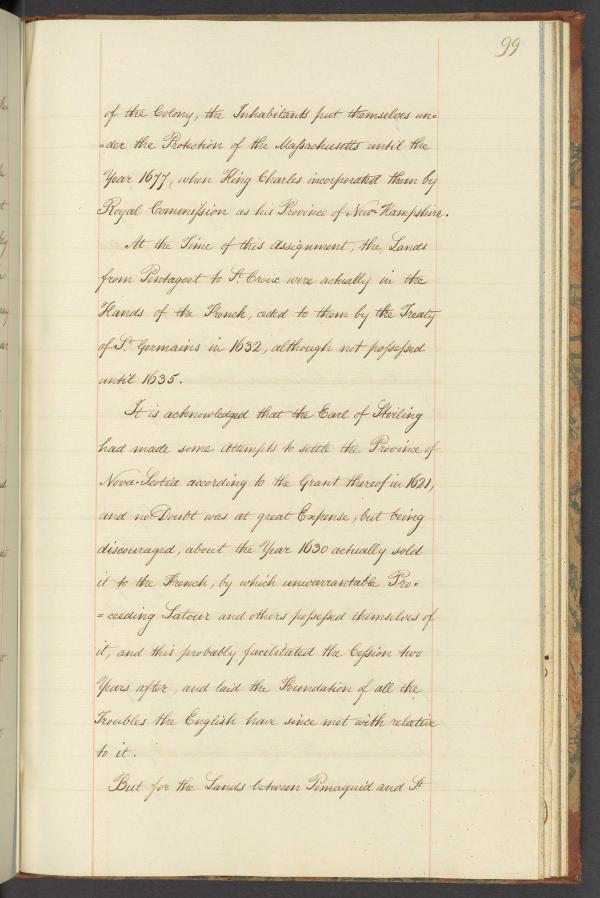 99
of the Colony, the Inhabitants put themselves un=
=der the Protection of the Maſsachusetts until the
Year 1677, when King Charles incorporated them by
Royal Commiſsion as his Province of New-Hampshire.
At the Time of this Assignment, the Lands
from Pentagoet to St. Croix were actually in the
Hands of the French, ceded to them by the Treaty
of St. Germains in 1632, although not poſseſsed
until 1635.
It is acknowledged that the Earl of Stirling
had made some attempts to settle the Province of
Nova-Scotia according to the Grant thereof in 1621,
and no Doubt was at great Expense, but being
discouraged, about the Year 1630 actually sold
it to the French, by which unwarrantable Pro=
=ceeding Latour and others poſseſsed themselves of
it, and this probably facilitated the Ceſsion two
Years after, and laid the Foundation of all the
Troubles the English have since met with relative
to it.
But for the Lands between Pemaquid and St.